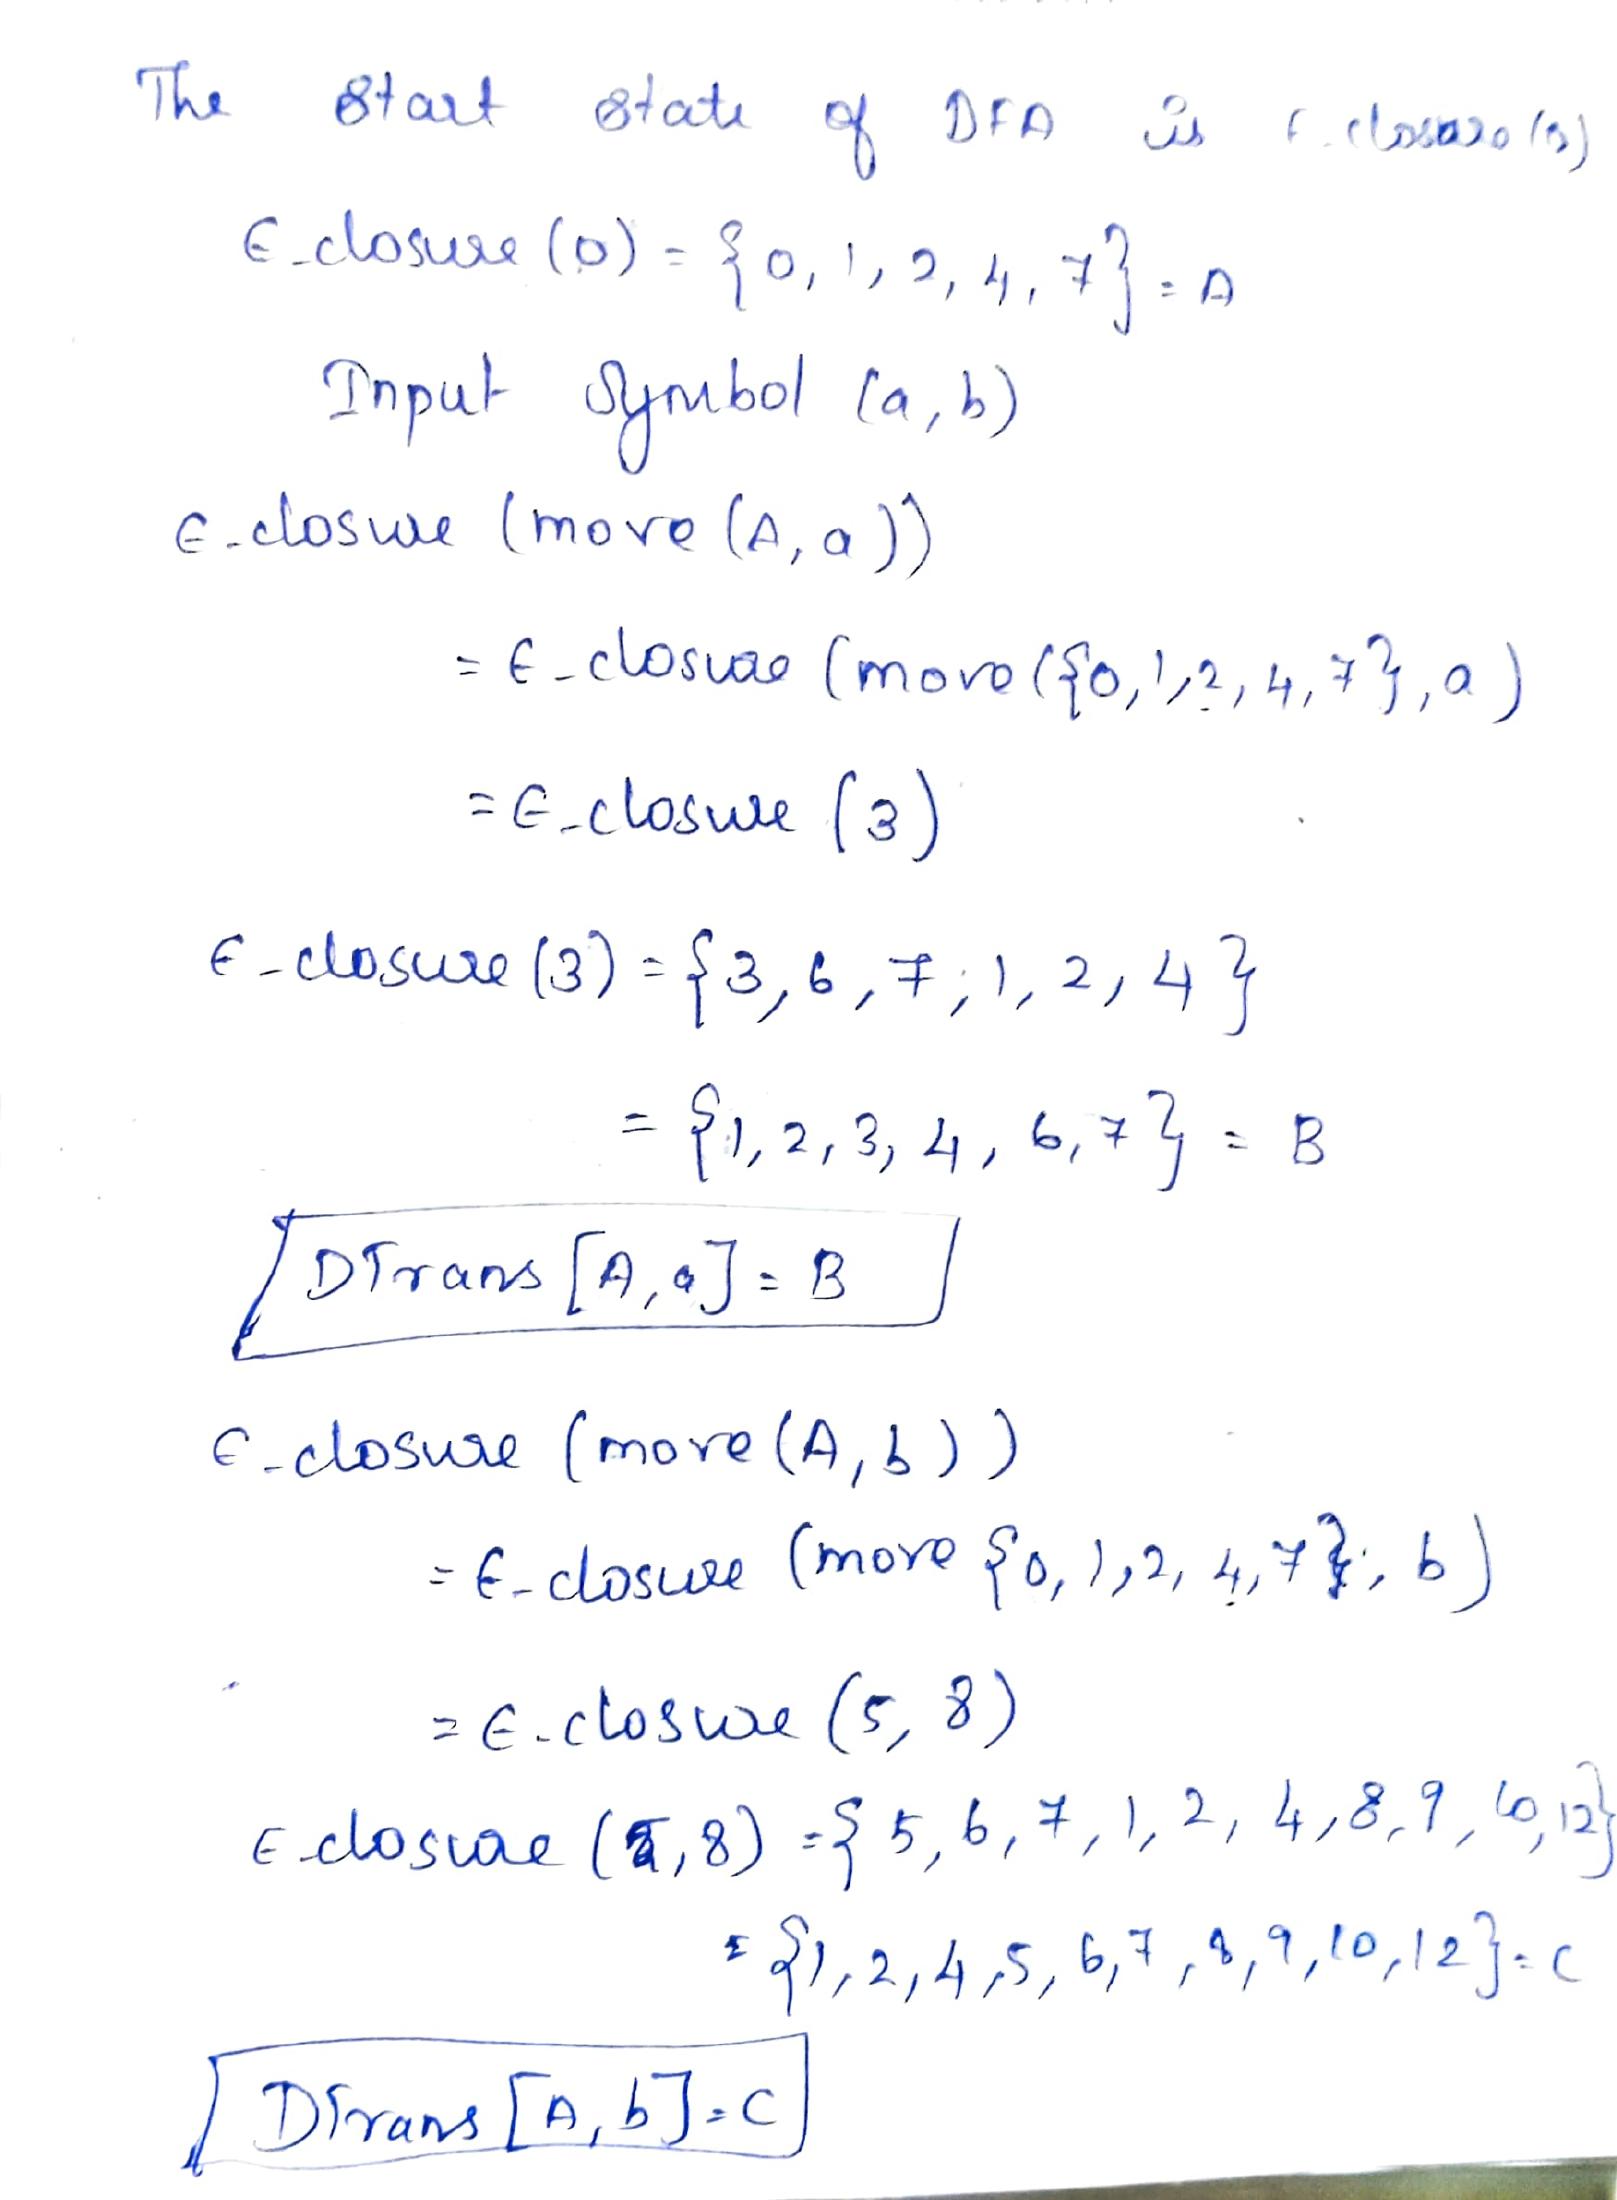 The start state of DFA is ε-closure(s)
ε-closure (0) = {0, 1, 2, 4, 7} = A
Input Symbol (a, b)
ε-closure (move (A, a))
= ε-closure (move ({0, 1, 2, 4, 7}, a)
= ε-closure (3)
ε-closure (3) = {3, 6, 7, 1, 2, 4}
= {1, 2, 3, 4, 6, 7} = B
DTrans [A, a] = B
ε-closure (move (A, b))
= ε-closure (move {0, 1, 2, 4, 7}, b)
= ε-closure (5, 8)
ε-closure (5, 8) = {5, 6, 7, 1, 2, 4, 8, 9, 10, 12}
= {1, 2, 4, 5, 6, 7, 8, 9, 10, 12} = C
DTrans [A, b] = C